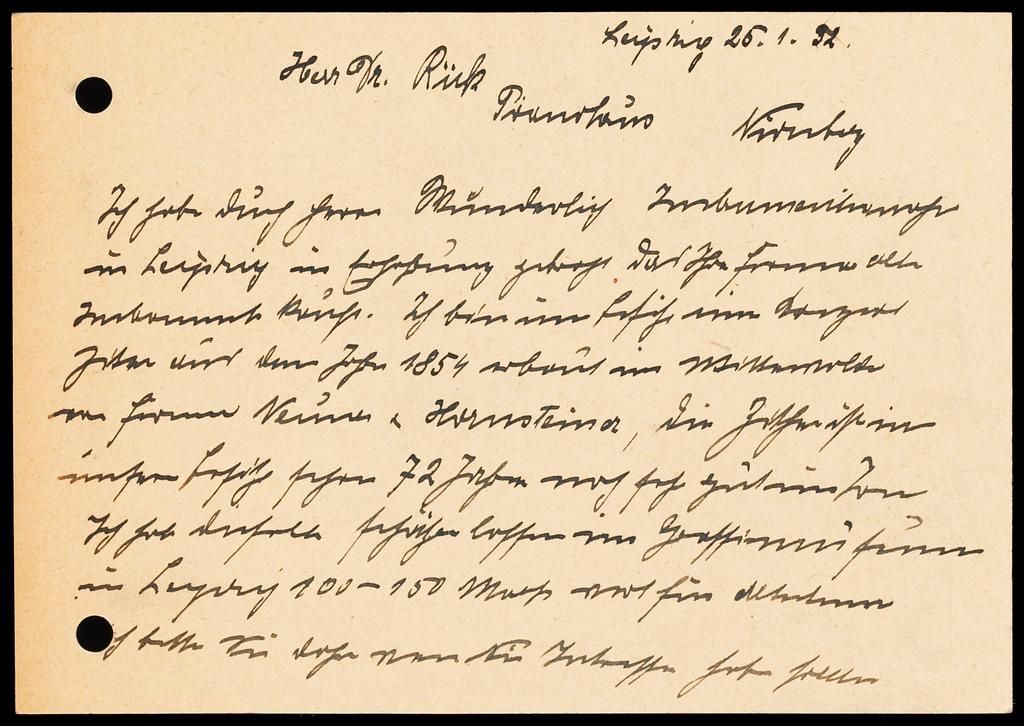 Leipzig 25. 1. 32.
Herr Dr. Rück
Pianohaus Nürnberg
Ich habe durch Herrn Wunderlich
in Leipzig in Erfahrung gebracht das Ihre Firma alte
Instrumente kauft. Ich bin im Besitz eine Konzert
Zither aus dem Jahre 1854 erbaut in Mittenwalde
von Firma Neuner & Hornsteiner, die Zither ist in
unsern Besitz schon 72 Jahre noch sehr gut im Ton
Ich habe dieselbe schätzen lassen im Grassimuseum
in Leipzig 100 – 150 Mark
Ich bitte Sie daher wenn Sie Interesse habe sollten